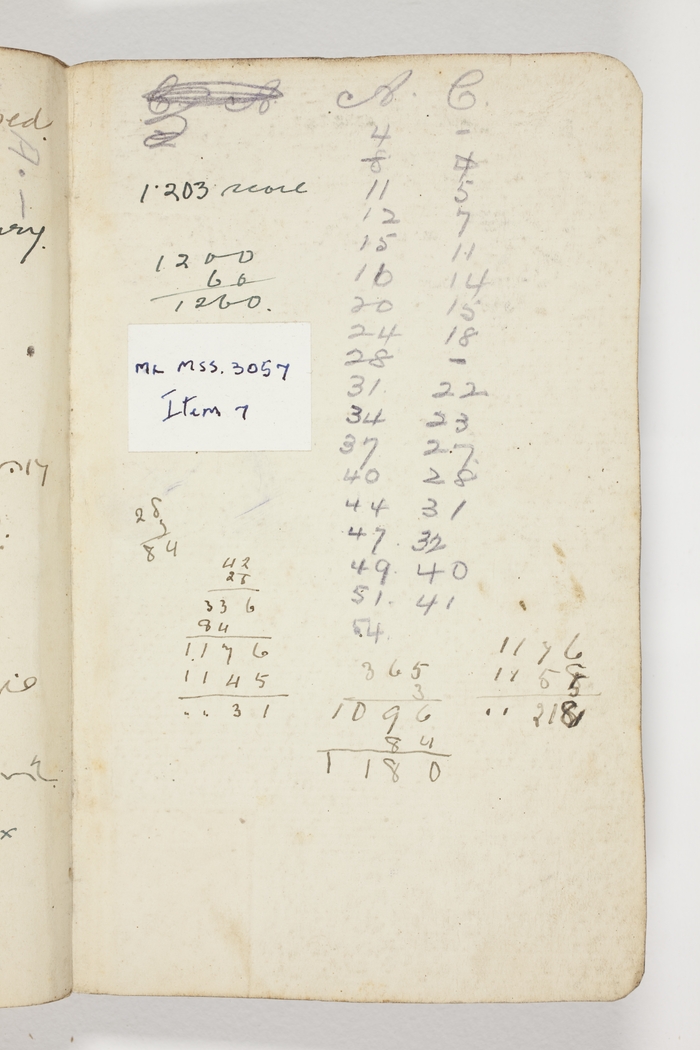 A. C.
4 -
8 4
11 5
12 7
15 11
16 14
20 15
24 18
28 -
31 22
34 23
37 27
40 28
44 31
47 32
49 40
51. 41
54.
1.203 score
1200
60
1260.
ML MSS. 3057
Item 7
28
84
42
28
336
84
1176
1145
.. 31
365
3
1096
84
1180
1176
.. 218